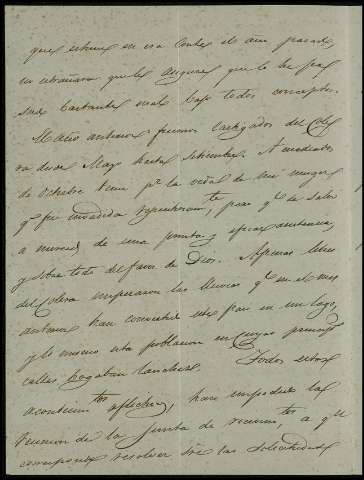 que estuve en esa Corte el año pasado,
no estrañara que le asegure que lo he pasado
bastante mal bajo todos conceptos.
El año anterior fuimos castigados del Cole
ra desde Mayo hasta Setiembre. A mediados
de octubre temi p.r la vida de mi muger
q.e fue invadida repentinam.te, pero q.e se salvó
a merced de una pronta y eficaz asistencia,
y sobre todo del favor de Dios. Apenas libres
del Colera empezaron las lluvias q.e en el mes
anterior han convertido este pais en un lago,
y lo mismo esta poblacion en cuyas principales
calles bogaban lanchas. Todos estos
acontecim.tos aflictivos, han impedido la
reunion de la Junta de recursos a q.e
corresponde resolver s.re las solicitudes